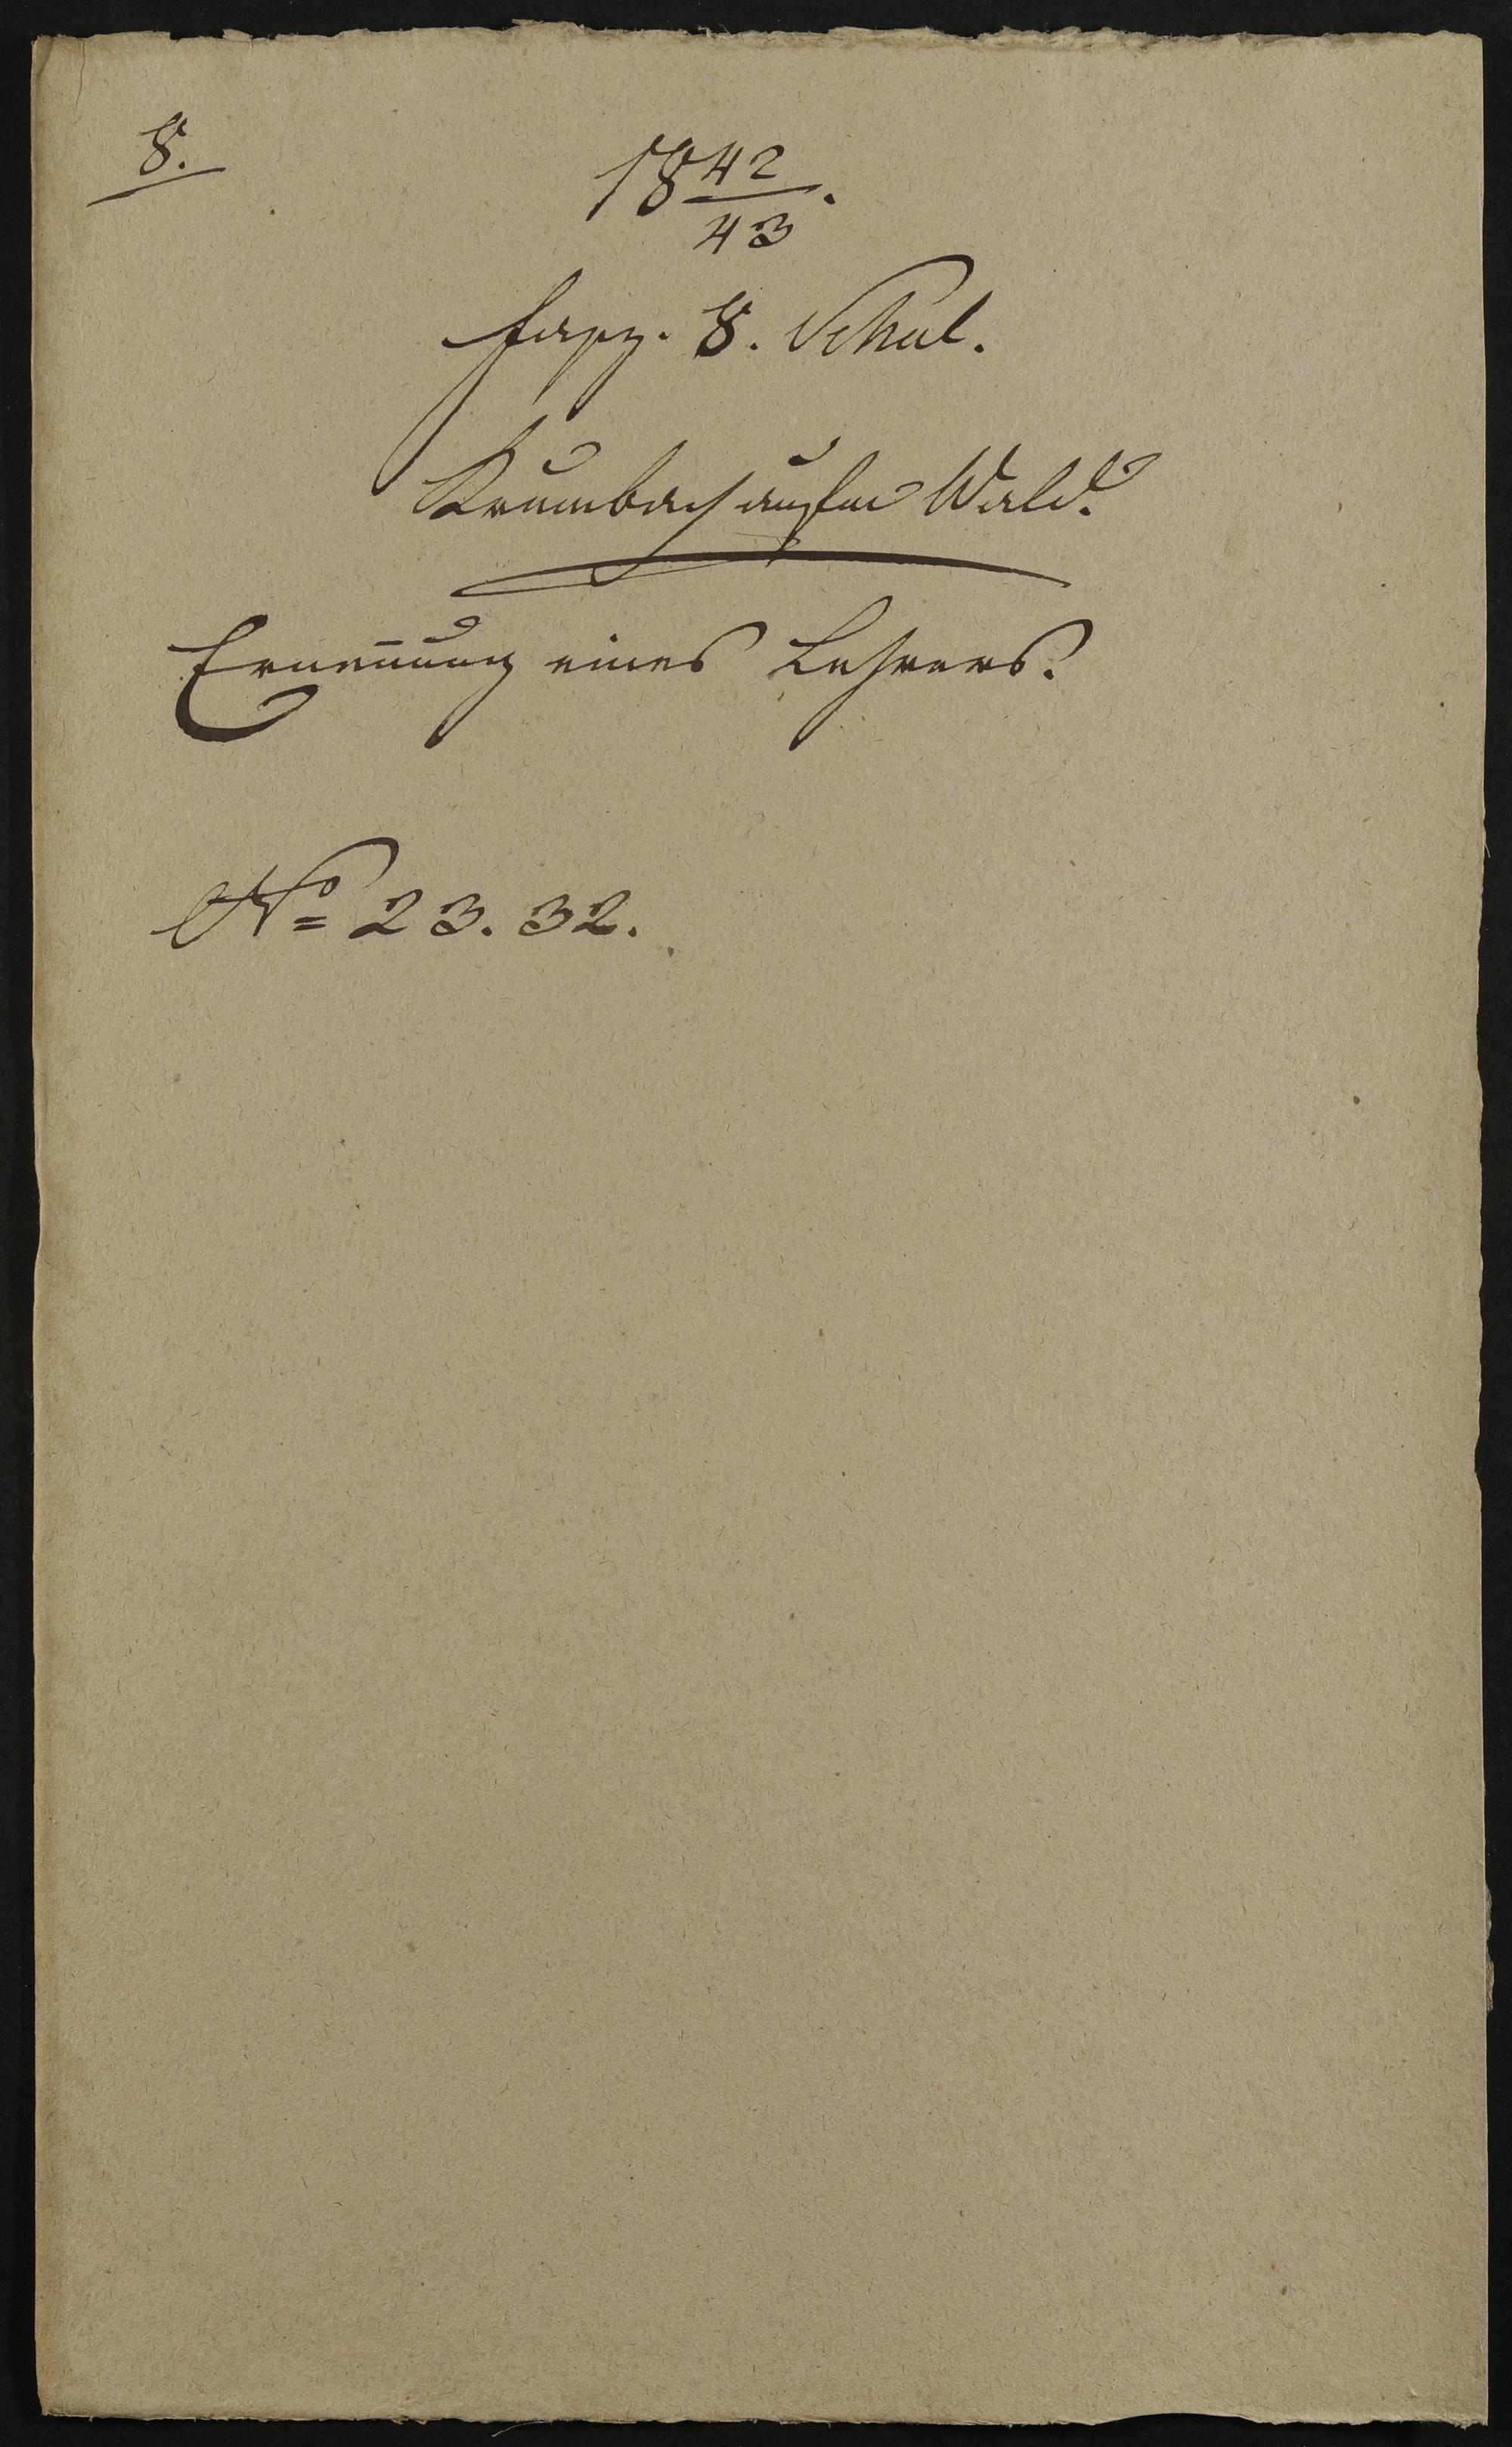 8.
18 42/43.
fasz. 8. Schul.
Krumbach auf'm Wald.
Ernen̄ung eines Lehrers.
No 23. 32.